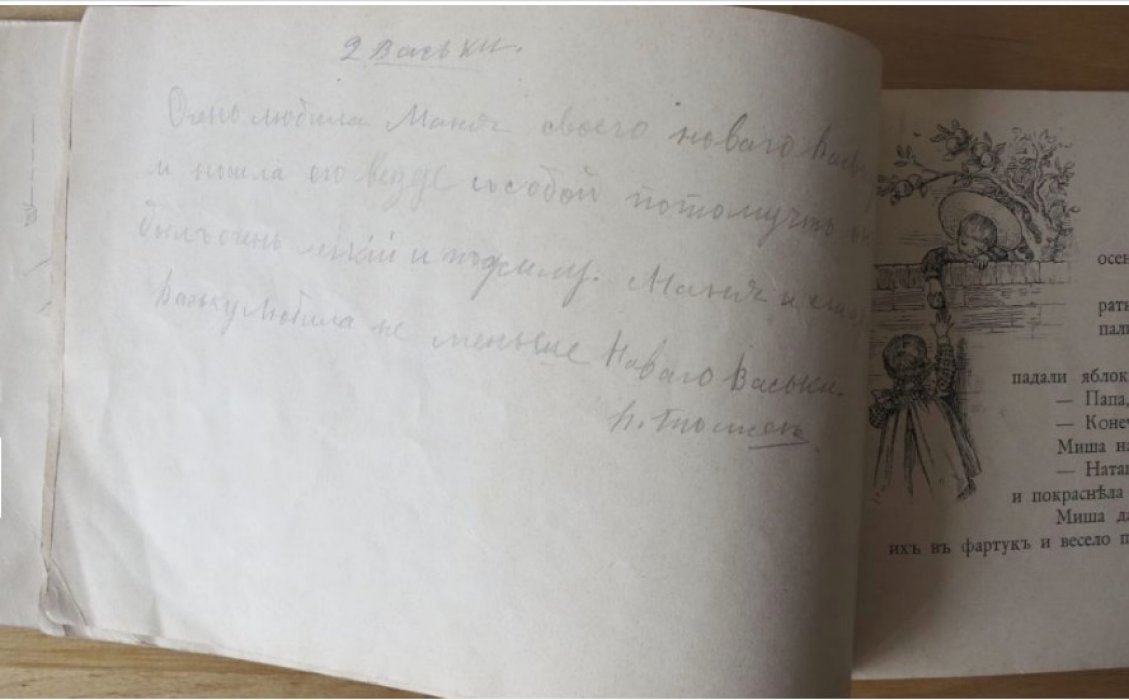 2 Васьки.
Очень любила Маня своего новаго Вась
и носила его везде съсобой потомучто он
былъочень легкий и подсилу. Маня и
Ваську любила не меньше Новаго Васьки.
осен
рати
пали
падали яблок
— Папа,
— Конеч
Миша на
— Натаг
и покраснѣла
Миша да
ихъ въ фартукъ и весело п